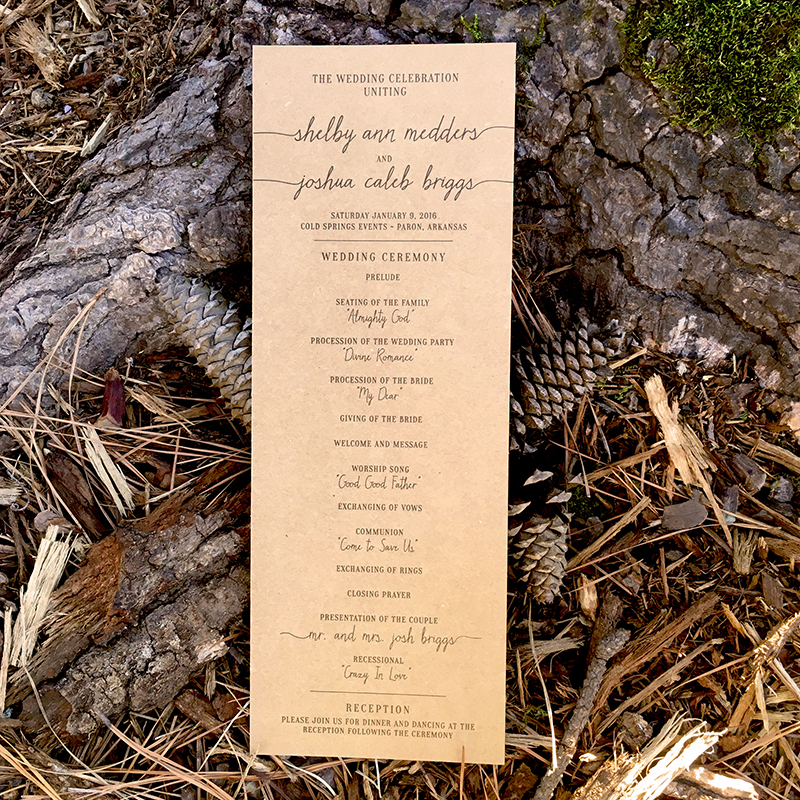 THE WEDDING CELEBRATION
UNITING
shelby ann medders
AND
joshua caleb briggs
SATURDAY JANUARY 9, 2016
COLD SPRINGS EVENTS - PARON, ARKANSAS
WEDDING CEREMONY
PRELUDE
SEATING OF THE FAMILY
"Almighty God"
PROCESSION OF THE WEDDING PARTY
"Divine Romance"
PROCESSION OF THE BRIDE
"My Dear"
GIVING OF THE BRIDE
WELCOME AND MESSAGE
WORSHIP SONG
"Good Good Father"
EXCHANGING OF VOWS
COMMUNION
"Come to Save Us"
EXCHANGING OF RINGS
CLOSING PRAYER
PRESENTATION OF THE COUPLE
mr. and mrs. josh briggs
RECESSIONAL
"Crazy In Love"
RECEPTION
PLEASE JOIN US FOR DINNER AND DANCING AT THE
RECEPTION FOLLOWING THE CEREMONY